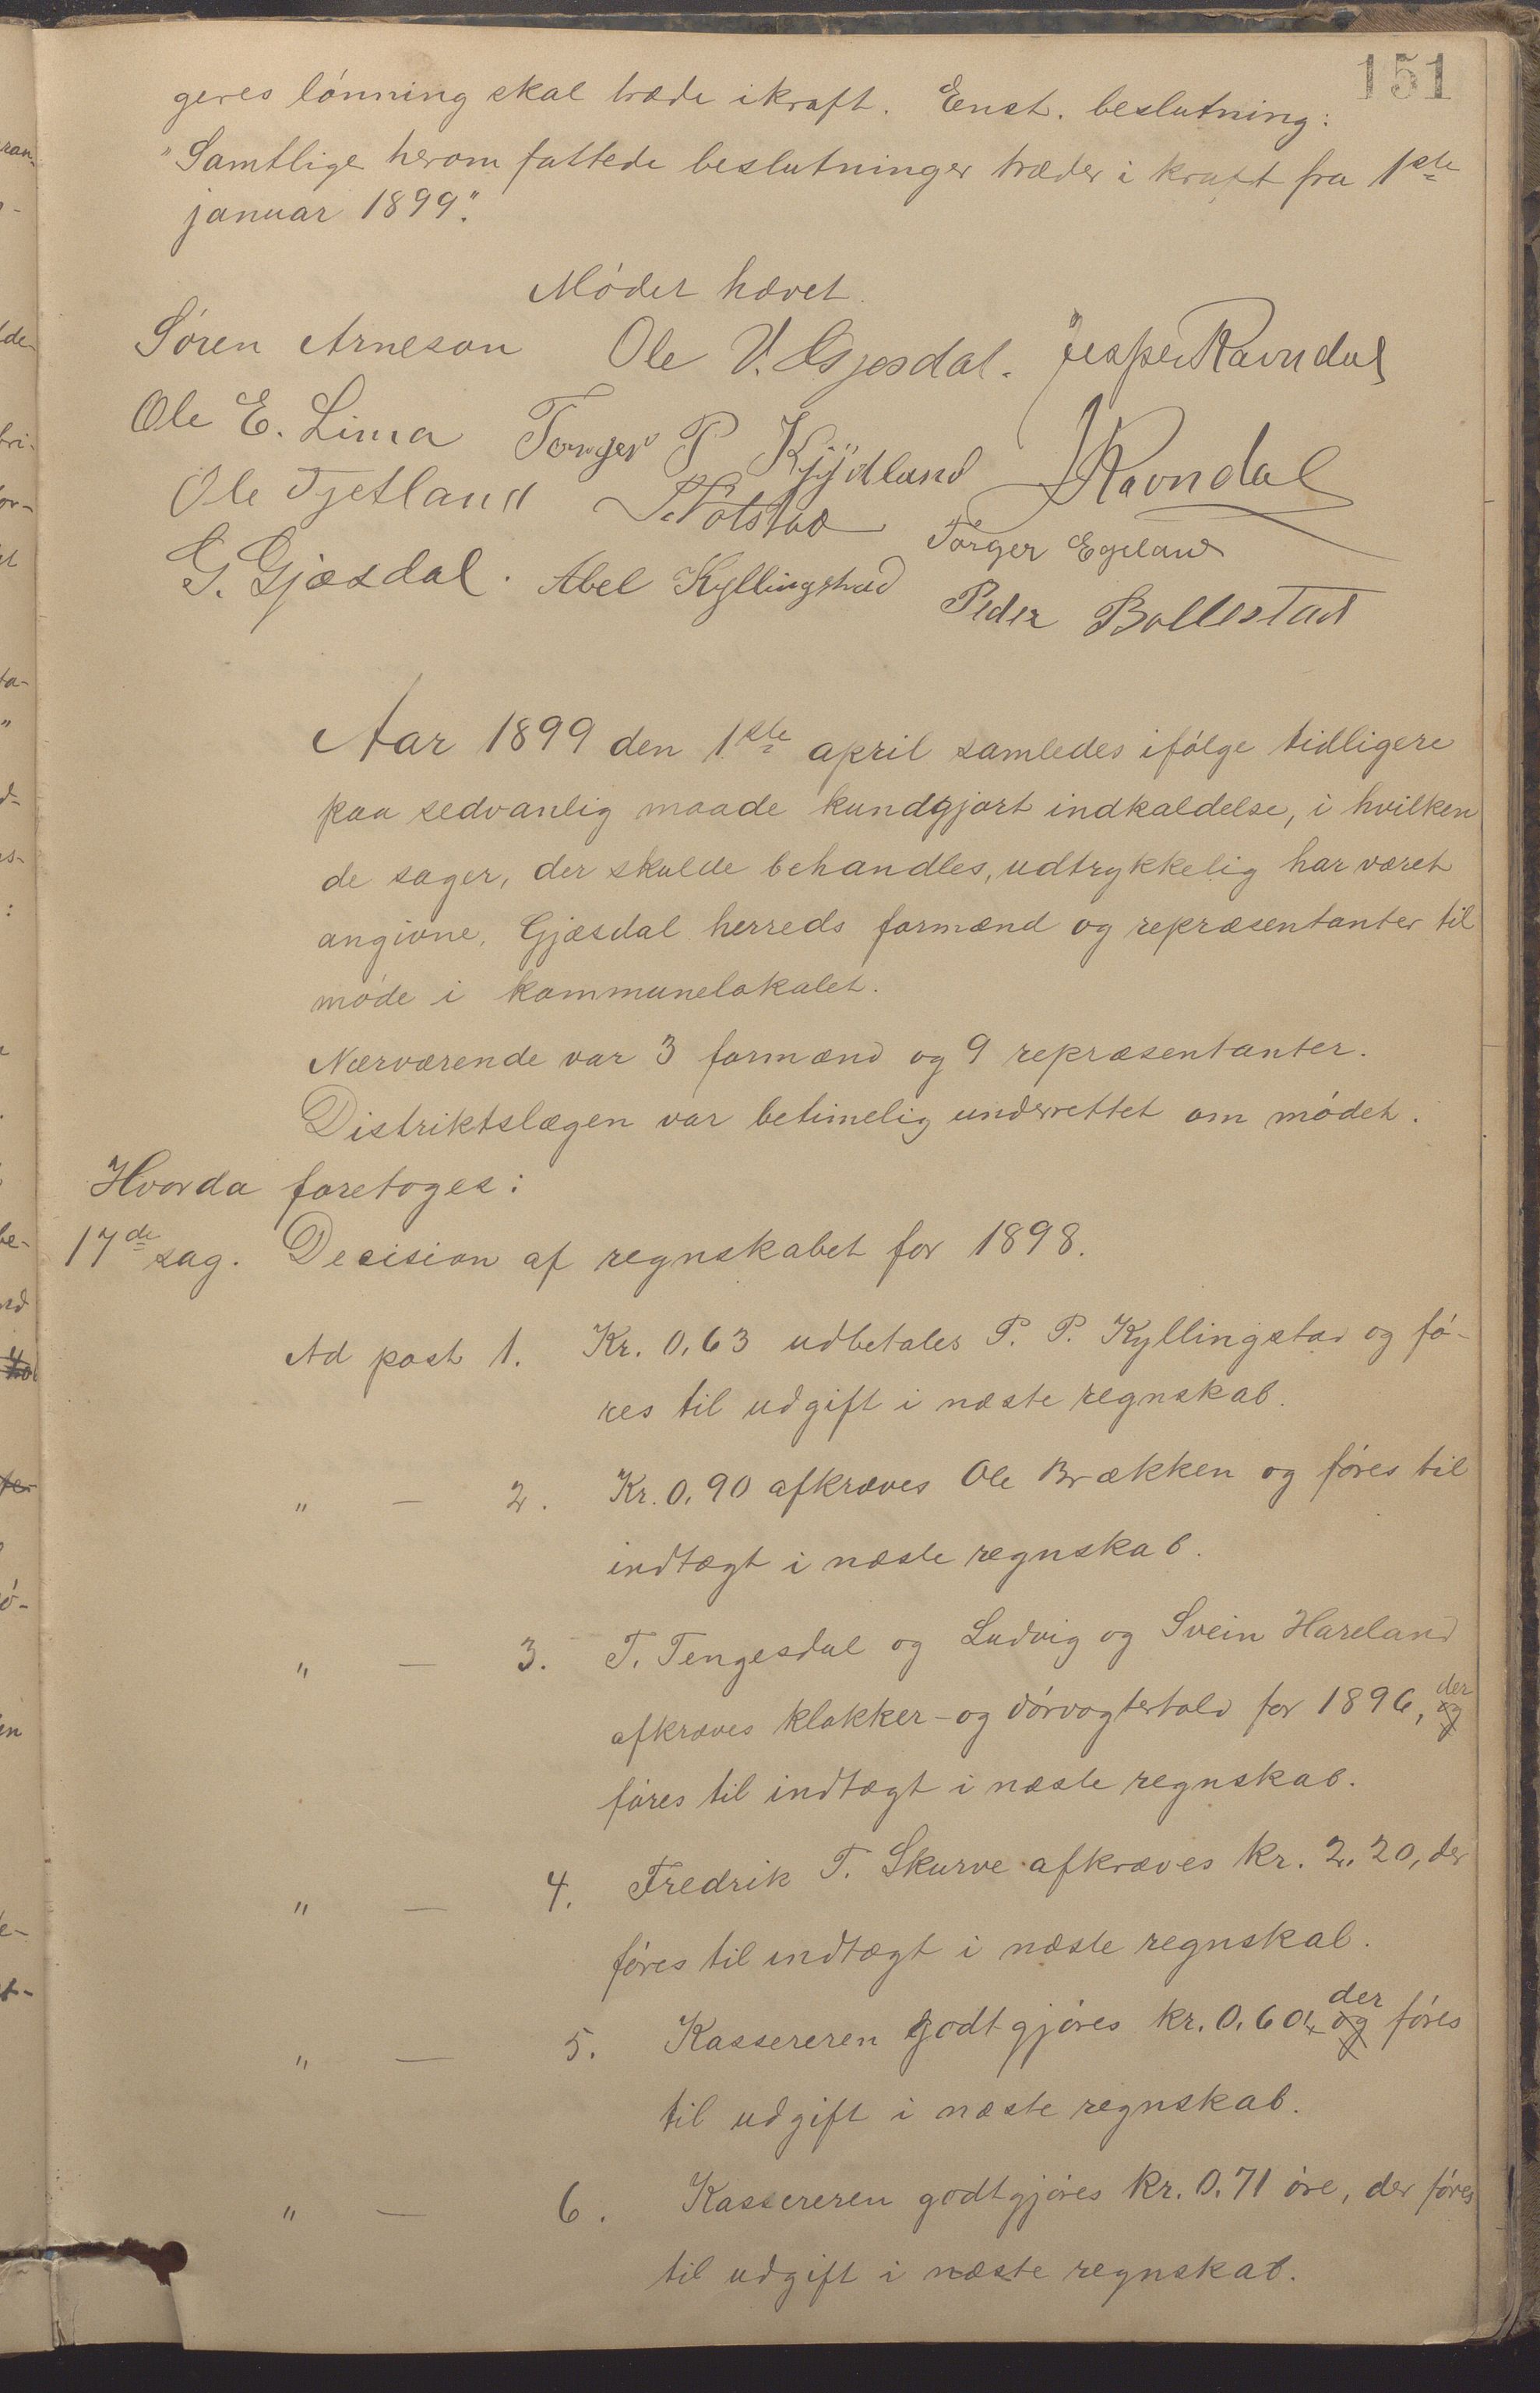 151
geres lønning skal træde ikraft. Enst. beslutning:
"Samtlige herom fattede beslutninger træder i kraft fra 1ste
januar 1899."
Mødet hævet.
Søren Arneson Ole V. Gjesdal. Jesper Ravndal
Ole E. Lima Torger P KyDland JRavndal
Ole Tjetland Torger Egeland
G. Gjæsdal. Abel Kyllingstad Peder Bollestad
Aar 1899 den 1ste april samledes ifølge tidligere
paa sedvanlig maade kundgjort indkaldelse, i hvilken
de sager, der skulde behandles, udtrykkelig har været
angivne, Gjæsdal herreds formænd og repræsentanter til
møde i kommunelokalet.
Nærværende var 3 formænd og 9 repræsentanter.
Distriktslægen var betimelig underrettet om mødet.
Hvorda foretoges:
17de sag. Decision af regnskabet for 1898.
Ad post 1. Kr. 0,63 udbetales P. P. Kyllingstad og fø-
res til udgift i næste regnskab.
" — 2. Kr. 0,90 afkræves Ole Brækken og føres til
indtægt i næste regnskab.
" — 3. T. Tengesdal og Ludvig og Svein Hareland
afkræves klokker- og dørvogtertold for 1896, og der
føres til indtægt i næste regnskab.
" — 4. Fredrik T. Skurve afkræves kr. 2,20, der
føres til indtægt i næste regnskab.
" — 5. Kassereren godtgjøres kr. 0,60, og der føres
til udgift i næste regnskab.
" — 6. Kassereren godtgjøres kr. 0,71 øre, der føres
til udgift i næste regnskab.